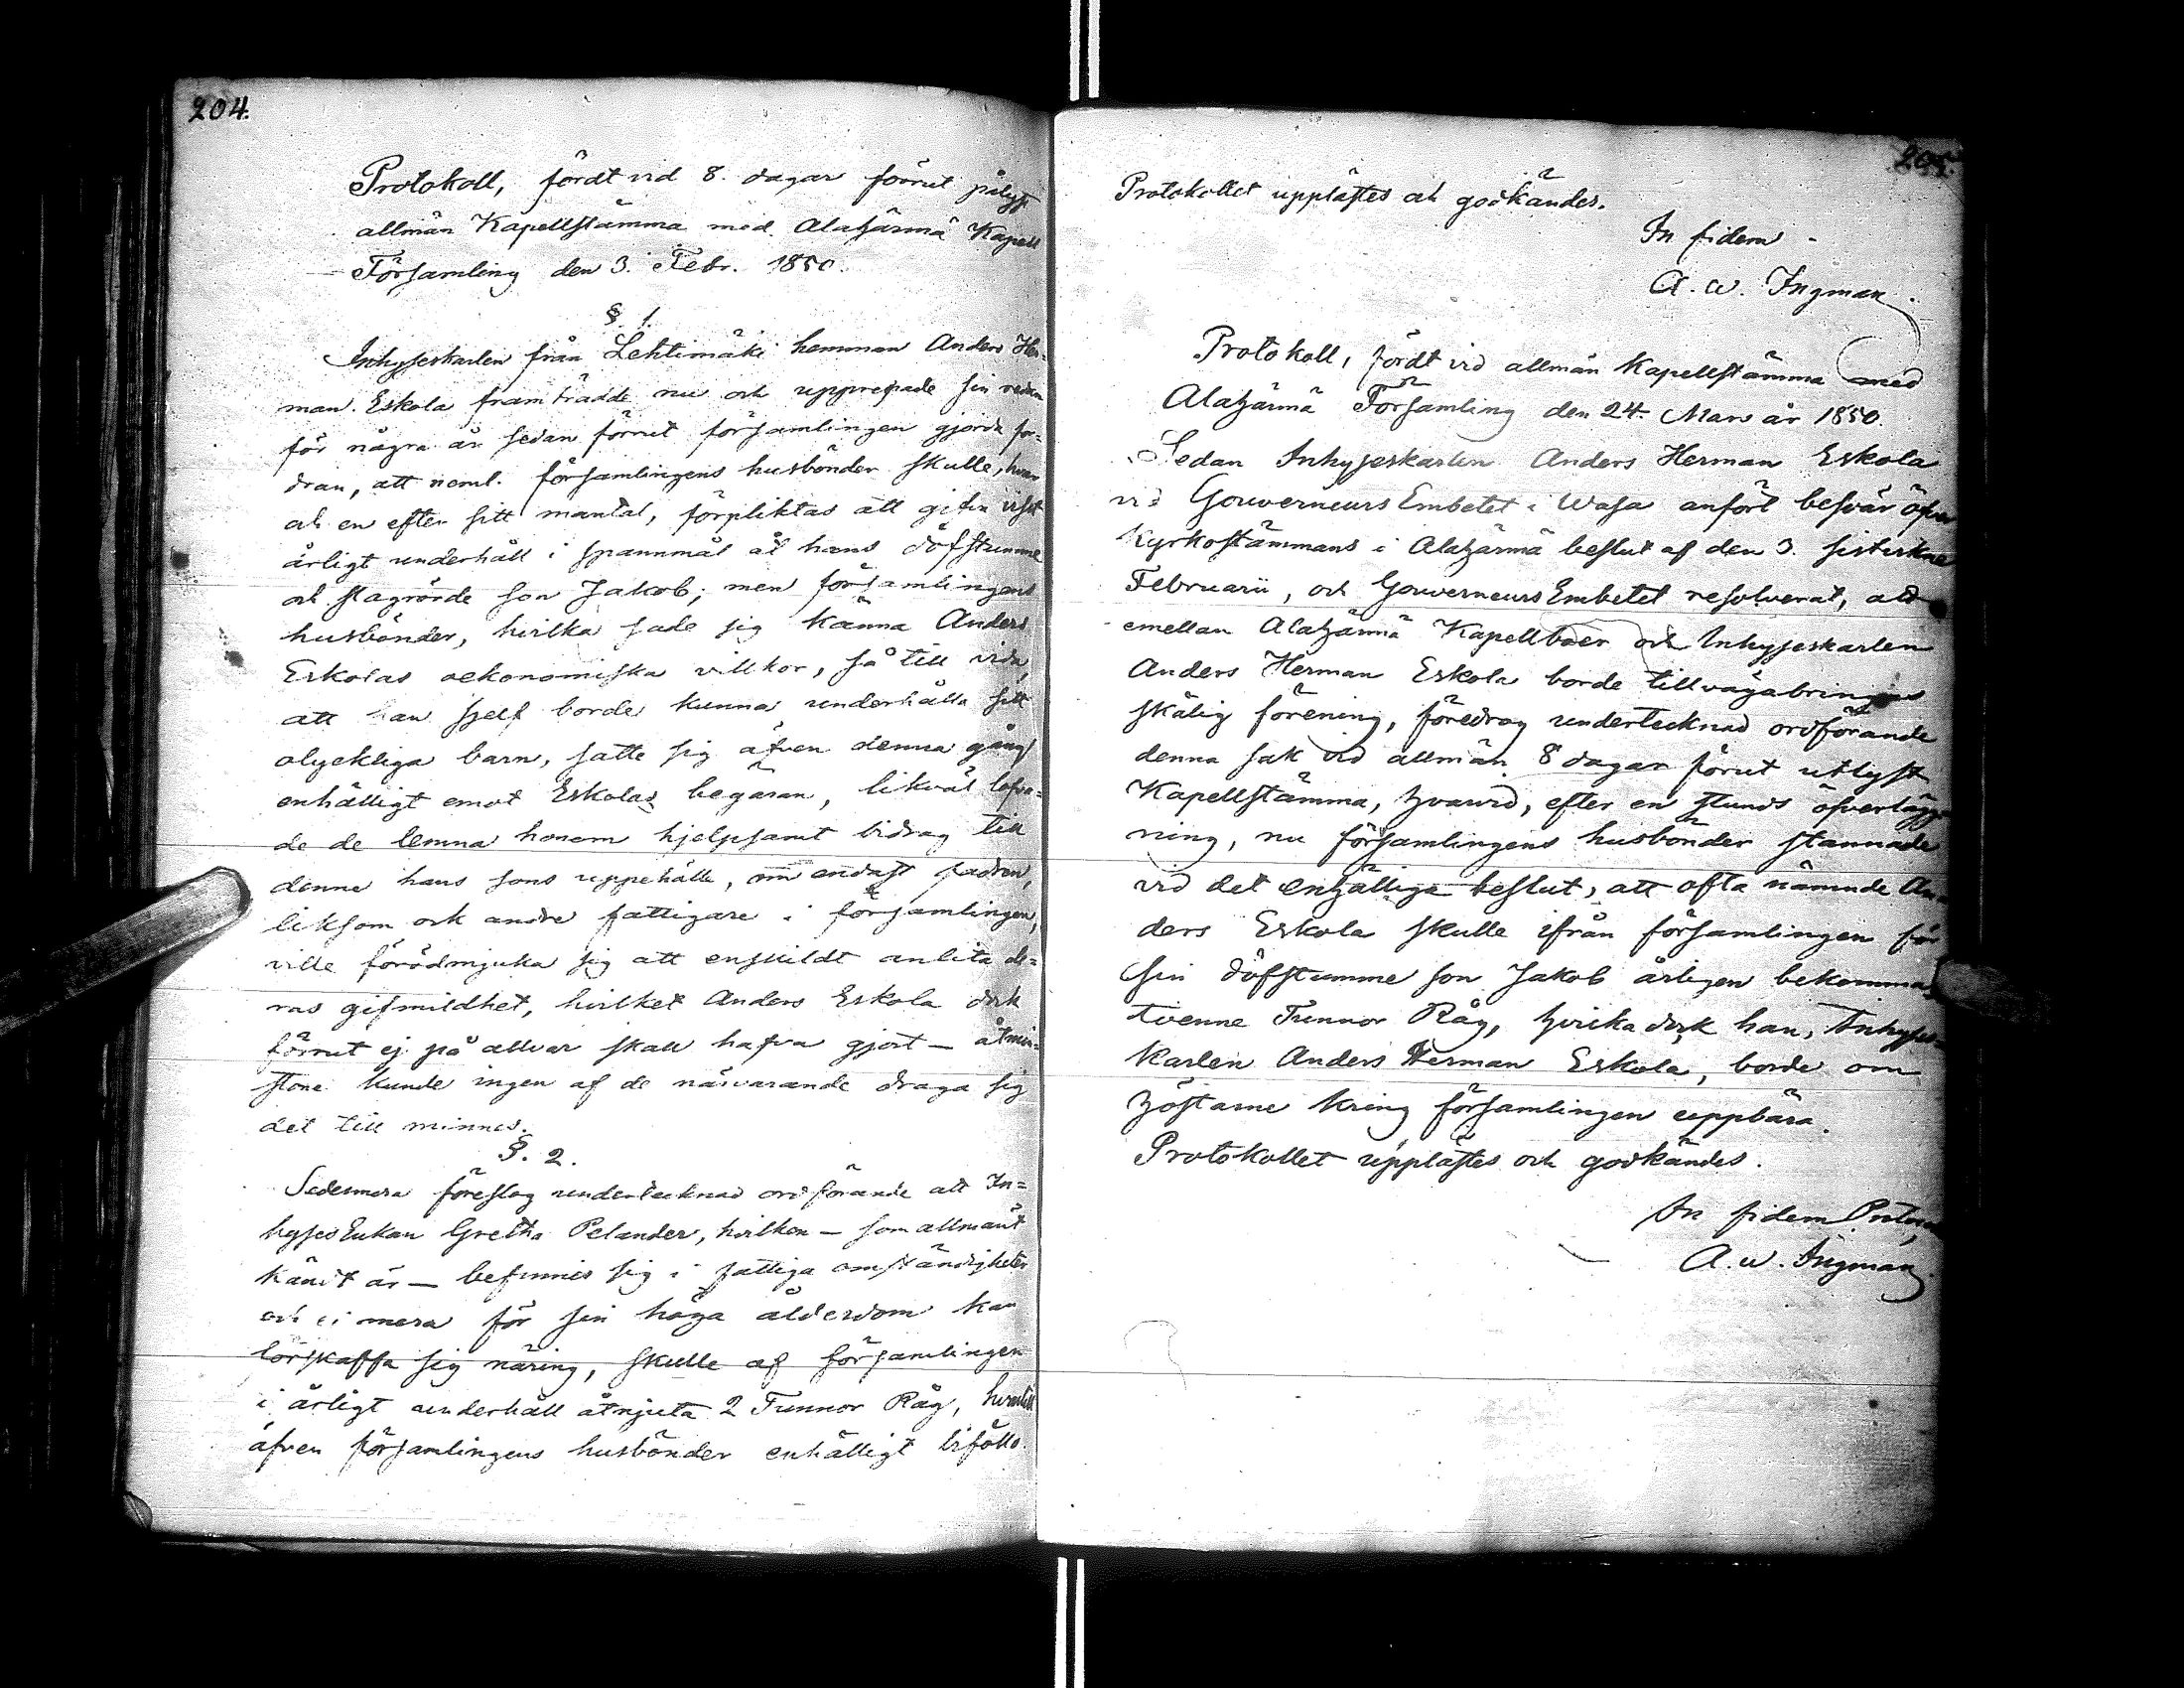 204.
Protokoll, fördt vid 8. dagar förrut pålyst
allmän Kapellstämma med Alahärmä Kapell
Församling den 3. Febr. 1850.
§. 1.
Inhyseskarlen från Lehtimäki hemman Anders Her=
man. Eskola framträdde nu och upprepade sin redan
för några år sedan förrut församlingen gjorda for=
dran, att neml. församlingens husbönder skulle, hvar
och en efter sitt mantal, förpliktas att gifva visst
årligt underhåll i spannmål åt hans döfstumme
och slagrörde son Jakob; men församlingens
husbönder, hvilka sade sig känna Anders
Eskolas oekonomiska villkor, så till vida,
att han sjelf borde kunna underhålla sitt
olyckliga barn, satte sig äfven denna gång
enhälligt emot Eskolas begäran, likväl lofva=
de de lemna honom hjelpsamt bidrag till
denne hans sons uppehälle, om endast fadren,
liksom ock andre fattigare i församlingen,
ville förödmjuka sig att enskildt anlita de=
ras gifmildhet, hvilket Anders Eskola dock
förrut ej på allvar skall hafva gjort – åtmin=
stone kunde ingen af de närvarande draga sig
det till minnes.
§. 2.
Sedermera föreslog undertecknad ordförande att In=
hysesEnkan Gretha Pelander, hvilken – som allmänt
kändt är – befinnes sig i fattiga omständigheter
och ei mera för sin höga ålderdom kan
förskaffa sig näring, skulle af församlingen
i årligt underhåll åtnjuta 2 Tunnor Råg, hvartill
äfven församlingens husbönder enhälligt biföllo.
205.
Protokollet upplästes och godkändes.
In fidem
A. W. Ingman.
Protokoll, fördt vid allmän Kapellstämma med
Alahärmä Församling den 24. Mars år 1850.
Sedan Inhyseskarlen Anders Herman Eskola
vid GouverneursEmbetet i Wasa anfört besvär öfver
Kyrkostämmans i Alahärmä beslut af den 3. sistvikne
Februarii, och GouverneursEmbetet resolverat, att
emellan Alahärmä Kapellboer och Inhyseskarlen
Anders Herman Eskola borde tillvägabringas
skälig förening, föredrog undertecknad ordförande
denna sak vid allmän 8 dagar förut utlyst
Kapellstämma, hvarvid, efter en stunds öfverlägg
ning, nu församlingens husbönder stannade
vid det enhälliga beslut, att ofta nämnde An
ders Eskola skulle ifrån församlingen för
sin döfstumme son Jakob årligen bekomma
tvenne Tunnor Råg, hvilka dock han, Inhyses=
karlen Anders Herman Eskola, borde om
höstarne kring församlingen uppbära.
Protokollet upplästes och godkändes.
In fidem
A. W. Ingman.